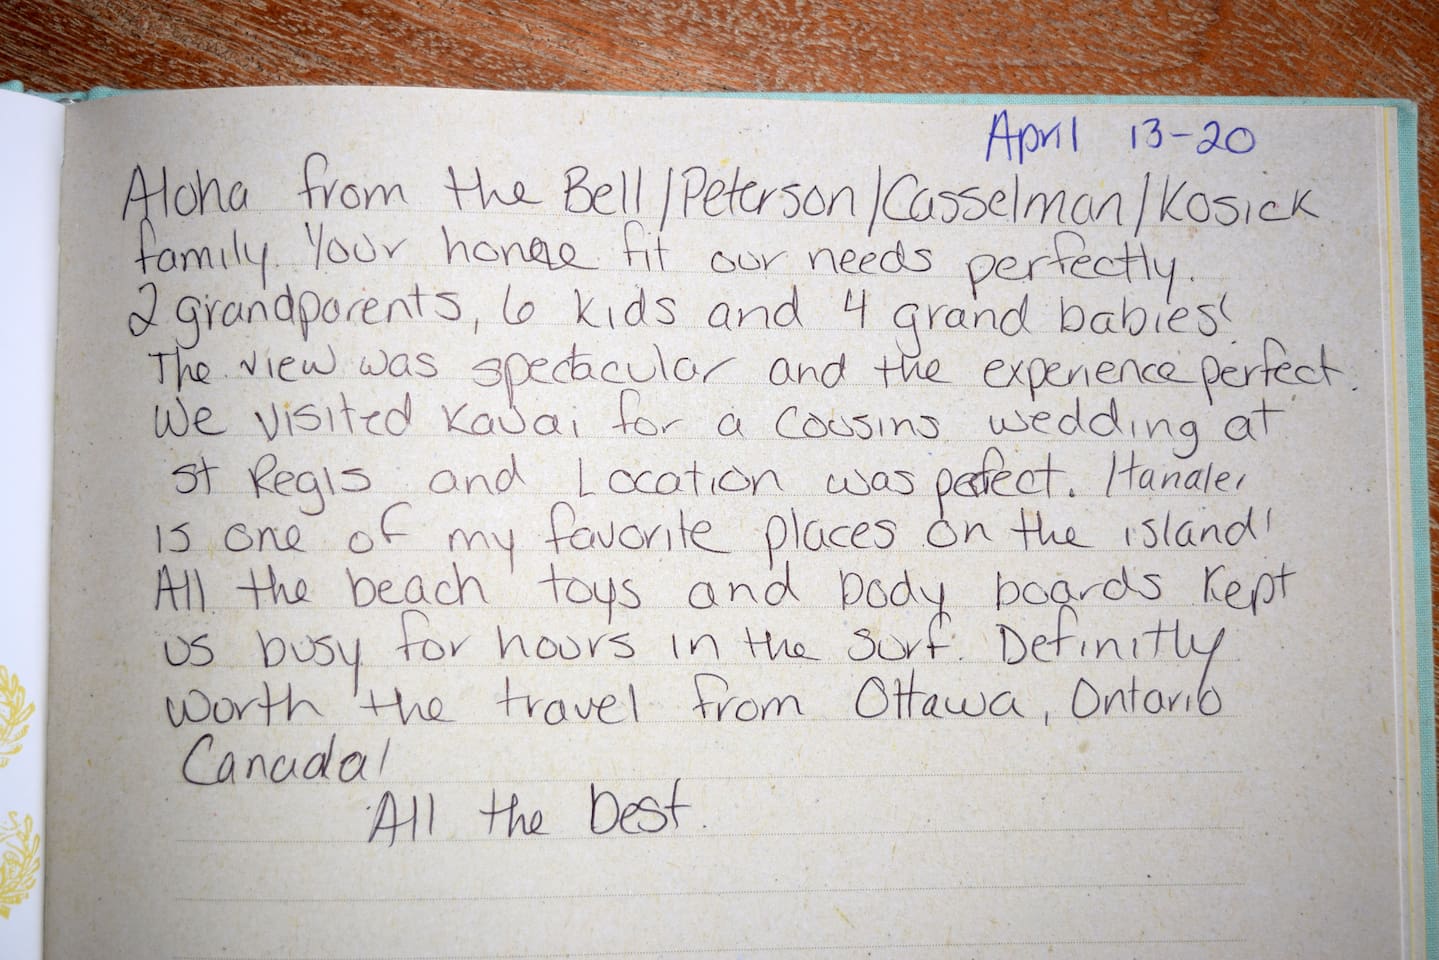 April 13-20
Aloha from the Bell/Peterson/Casselman/Kosick
family. Your home fit our needs perfectly.
2 grandparents, 6 kids and 4 grand babies!
The view was spectacular and the experience perfect.
We visited Kauai for a cousins wedding at
St Regis and Location was pefect. Hanalei
is one of my favorite places on the island!
All the beach toys and body boards kept
us busy for hours in the surf. Definitly
worth the travel from Ottawa, Ontario
Canada!
All the best.